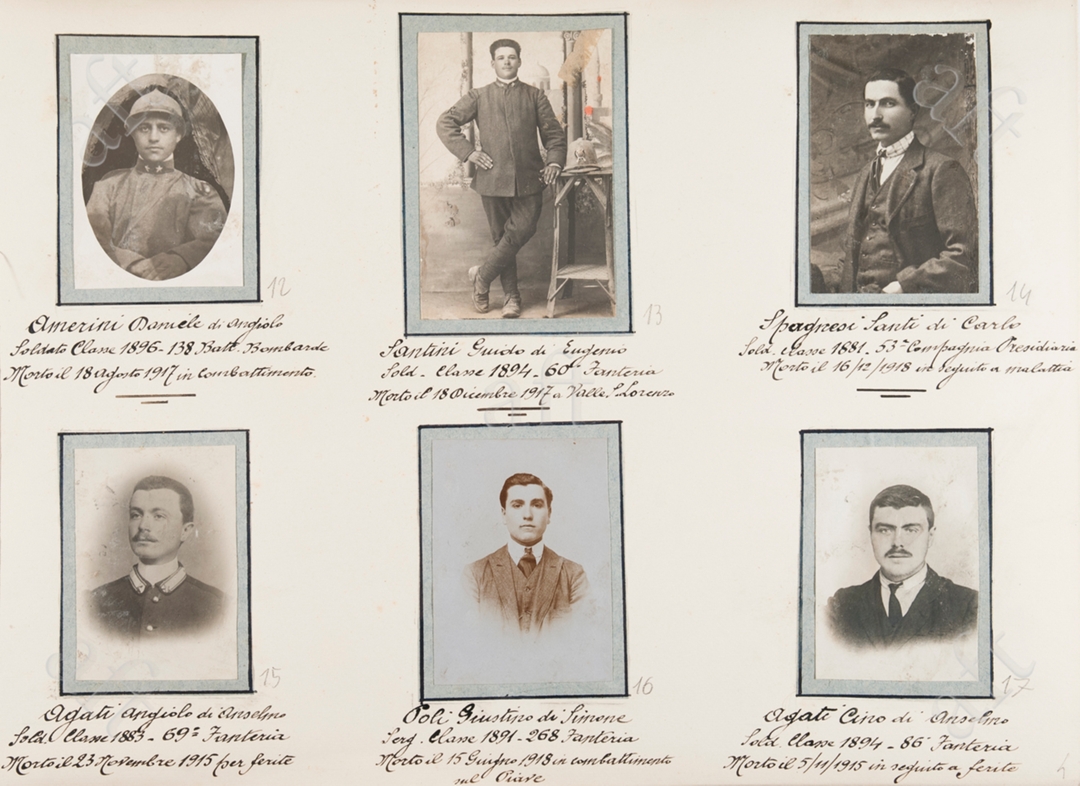 12
Amerini Daniele di Angiolo
Soldato Classe 1896 - 138. Batt. Bombarde
Morto il 18 agosto 1917 in combattimento.
13
Santini Guido di Eugenio
Sold. Classe 1894 - 60° Fanteria
Morto il 18 Dicembre 1917 a Valle S. Lorenzo
14
Spagnesi Santi di Carlo
Sold. classe 1881 - 53ª Compagnia Presidiaria
Morto il 16/12/1918 in seguito a malattia
15
Agati Angiolo di Anselmo
Sold. Classe 1883 - 69° Fanteria
Morto il 23 Novembre 1915 per ferite
16
Poli Giustino di Simone
Serg. Classe 1891 - 268 Fanteria
Morto il 15 Giugno 1918 in combattimento
sul Piave
17
Agati Cino di Anselmo
Sold. Classe 1894 - 86 Fanteria
Morto il 5/11/1915 in seguito a ferite
aft